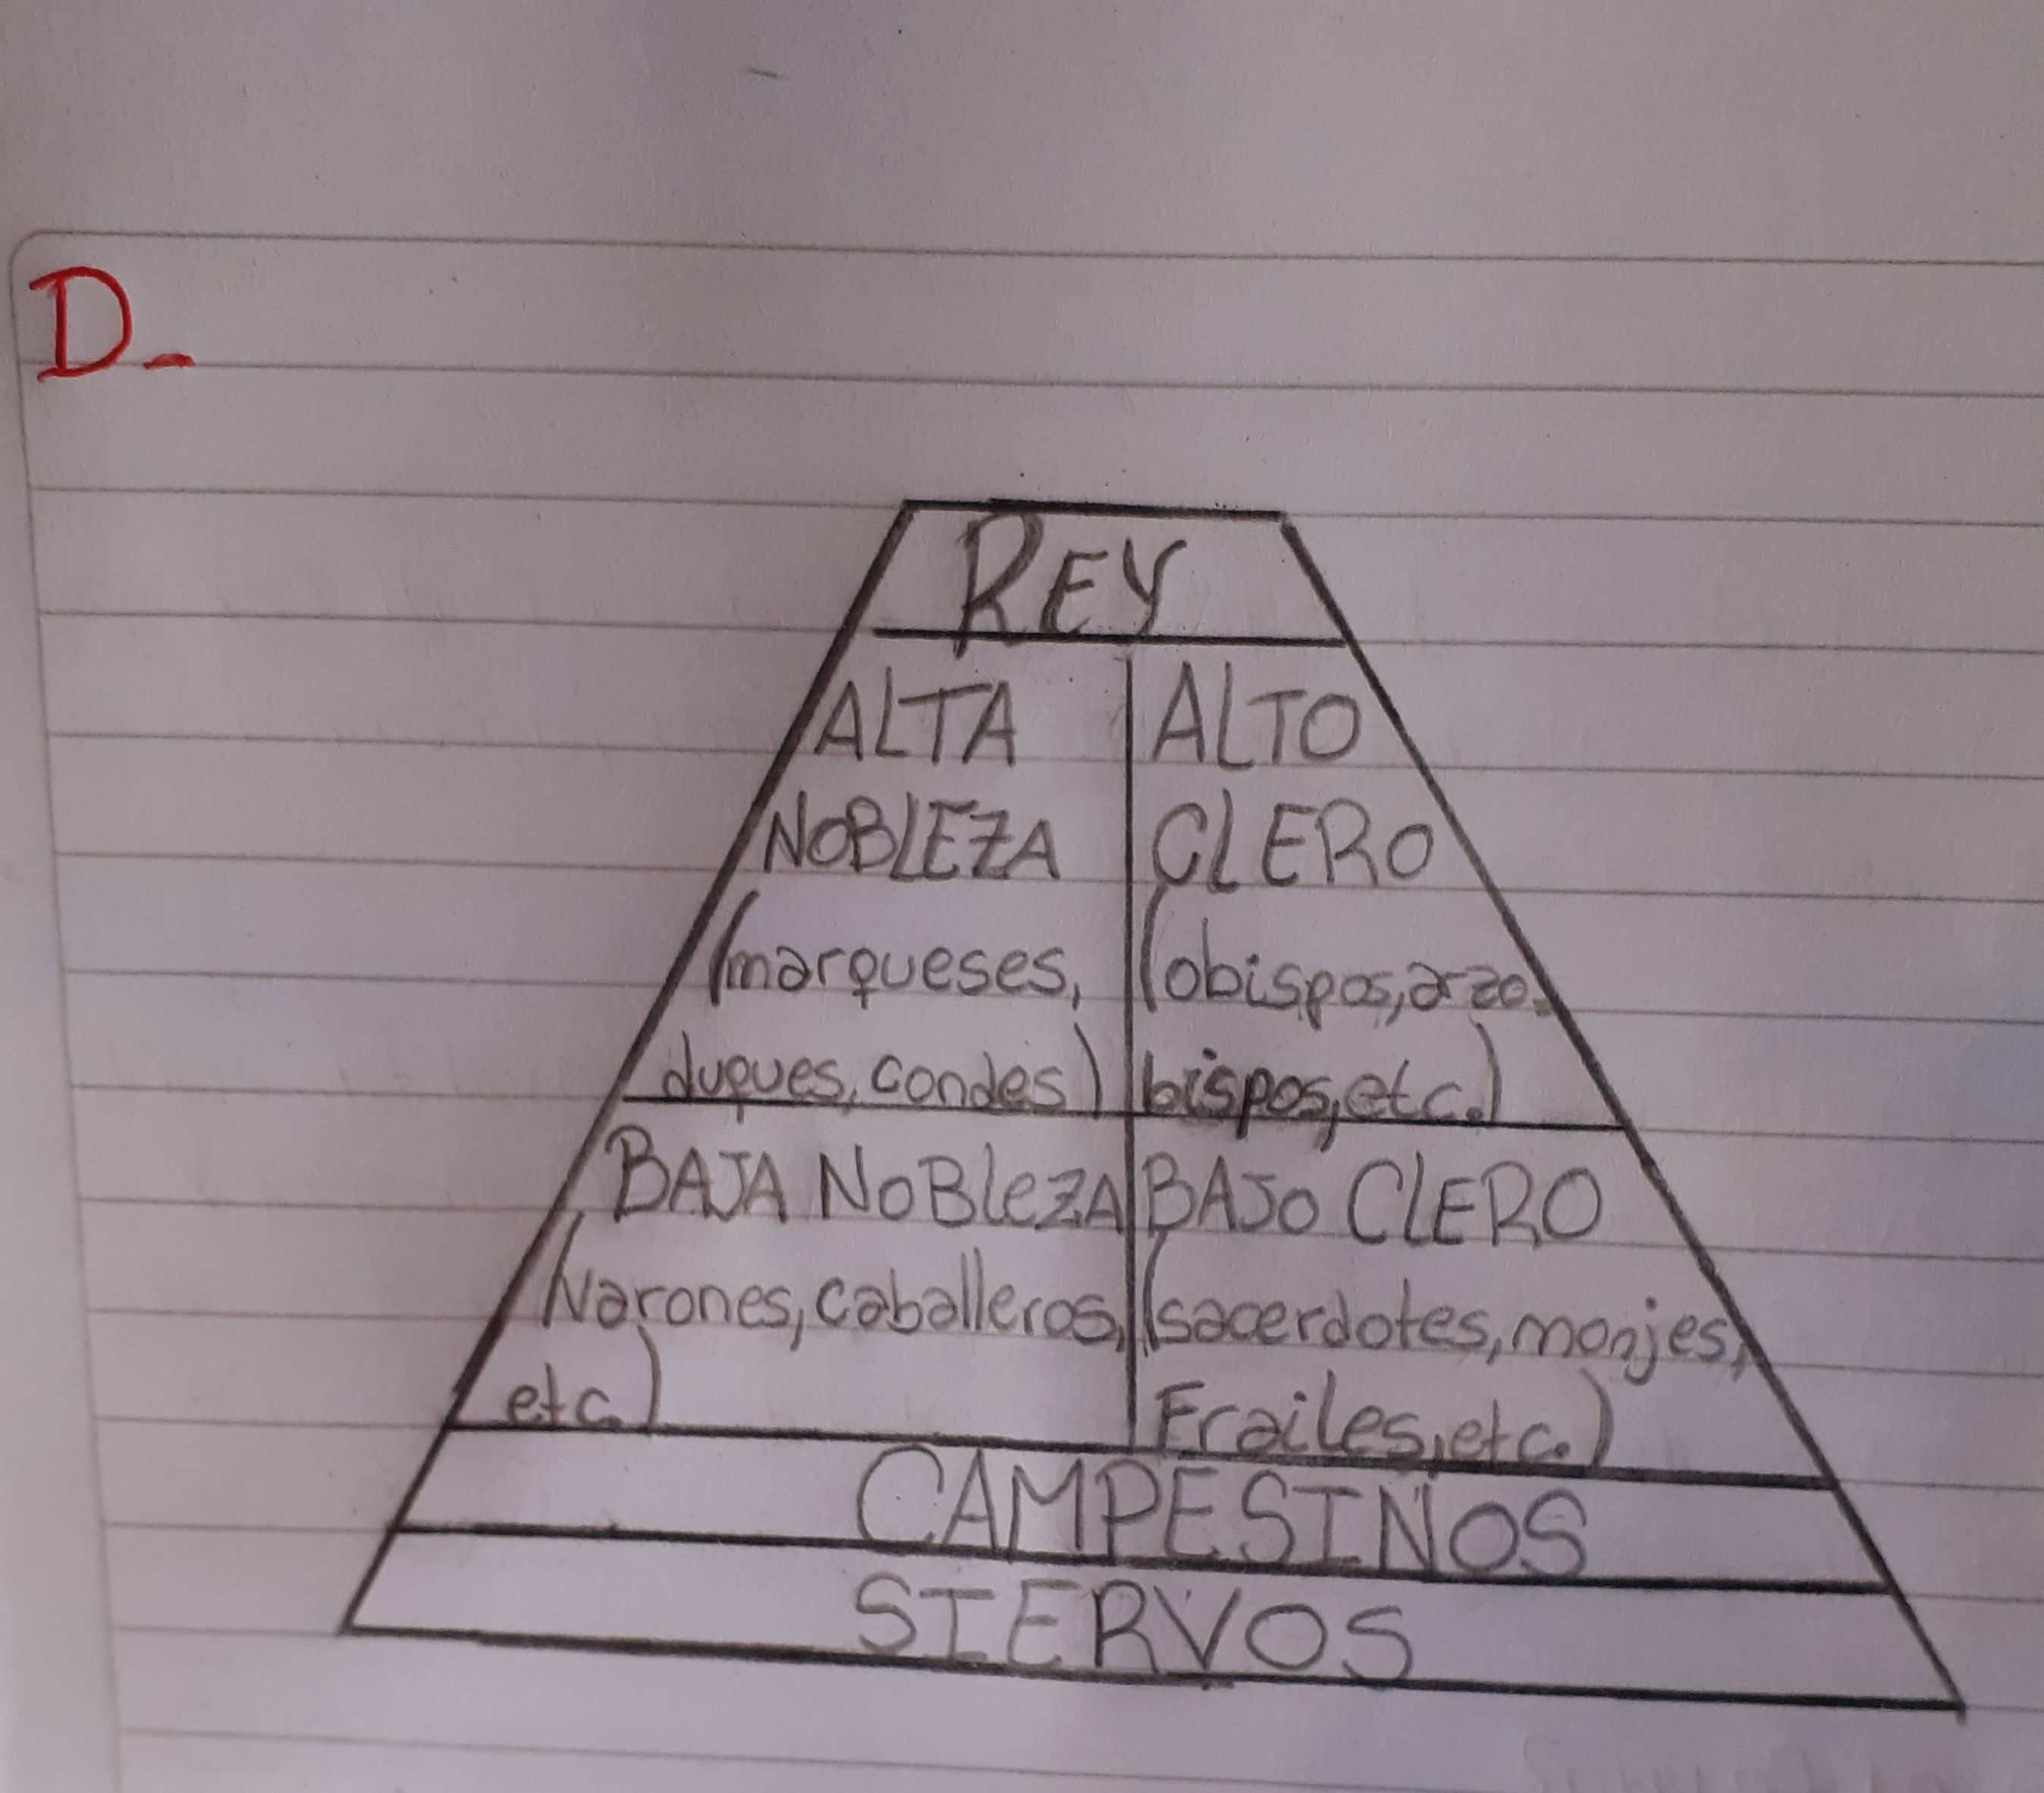 D-
REY
ALTA
NOBLEZA
(marqueses,
duques, condes)
ALTO
CLERO
(obispos, arzo-
bispos, etc.)
BAJA NOBleZA
(varones, caballeros,
etc.)
BAJO CLERO
(sacerdotes, monjes,
Frailes, etc.)
CAMPESINOS
SIERVOS